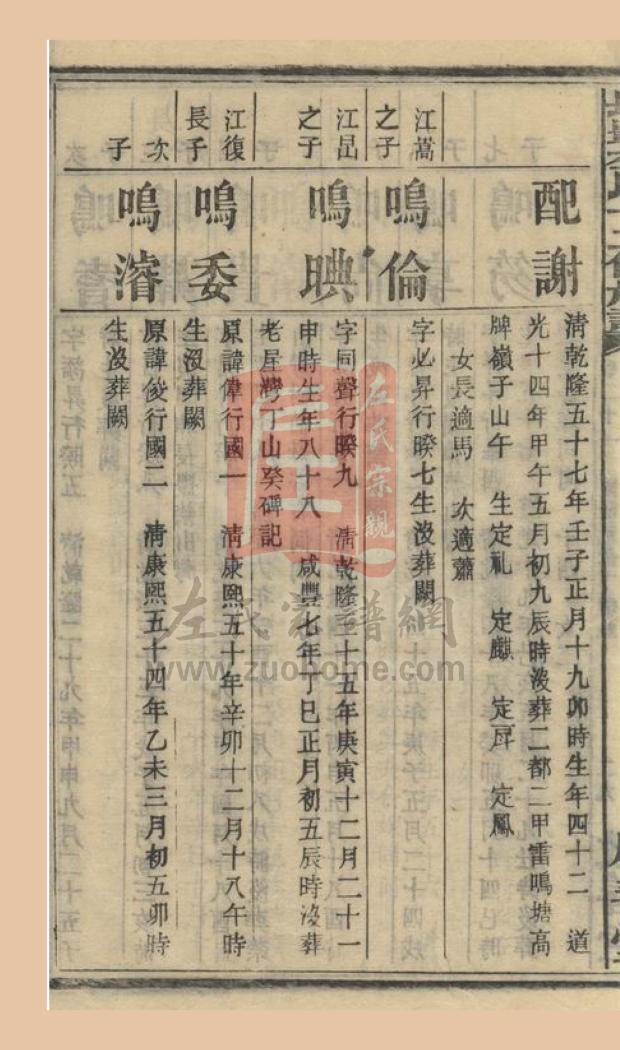 配謝
清乾隆五十七年壬子正月十九卯時生年四十二　道
光十四年甲午五月初九辰時沒葬二都二甲雷鳴塘高
牌嶺子山午　生定礼　定麒　定戽　定鳳
女長適馬　次適蕭
江嵩
之子
鳴倫
字必昇行暌七生沒葬闕
江岊
之子
鳴㬐
字同聲行暌九　清乾隆三十五年庚寅十二月二十一
申時生年八十八　咸豐七年丁巳正月初五辰時沒葬
老屋灣丁山癸碑記
江復
長子
鳴委
原諱偉行國一　清康熙五十年辛卯十二月十八午時
生沒葬闕
次
子
鳴濬
原諱俊行國二　清康熙五十四年乙未三月初五卯時
生沒葬闕
左氏宗親
左氏家譜網
www.zuohome.com